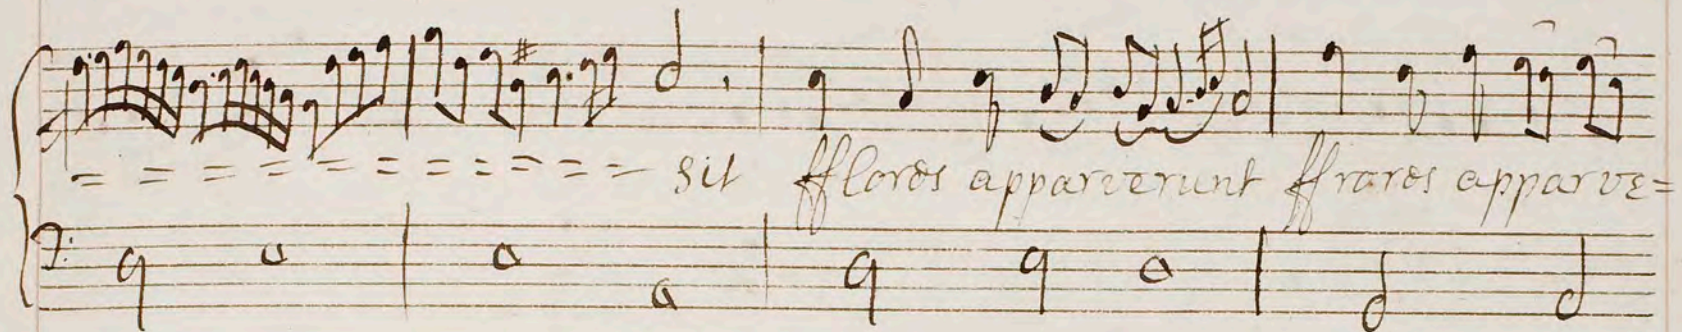 = = = = = = = = = = = - sit fflores apparverunt ffrores apparve=